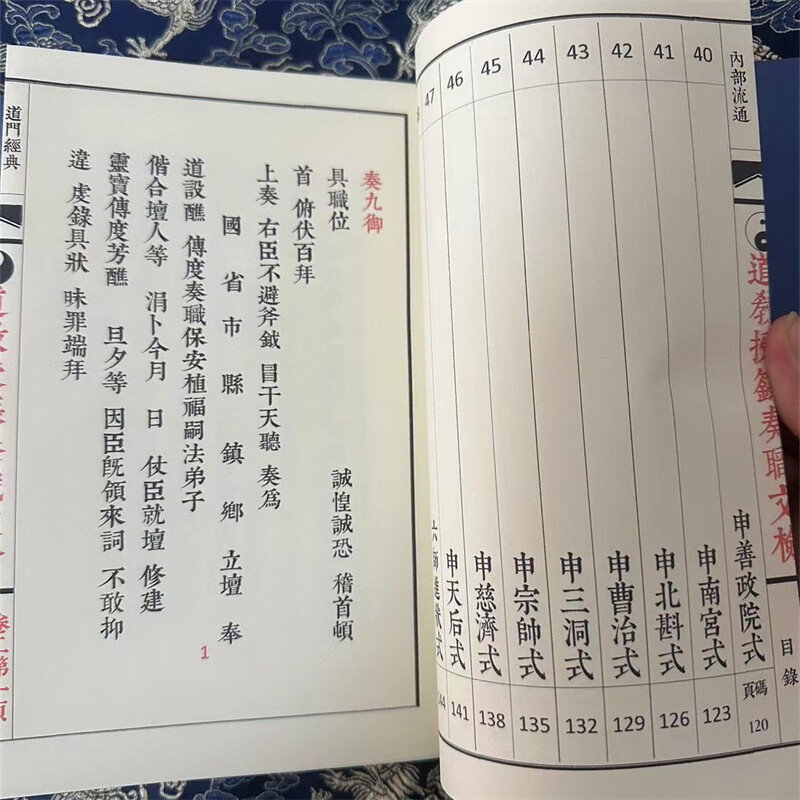 內部流通
道教授籙奏職文檢
目錄
申善政院式 頁碼 120
40 申南宮式 123
41 申北斟式 126
42 申曹治式 129
43 申三洞式 132
44 申宗帥式 135
45 申慈濟式 138
46 申天后式 141
47
奏九御
具職位 誠惶誠恐 稽首頓
首 俯伏百拜
上奏 右臣不避斧鉞 冒干天聽 奏為
國 省 市 縣 鎮 鄉 立壇 奉
道設醮 傳度奏職保安植福嗣法弟子
偕合壇人等 涓卜今月 日 仗臣就壇 修建
靈寶傳度芳醮 旦夕等 因臣既領來詞 不敢抑
違 虔錄具狀 昧罪端拜
1
道門經典